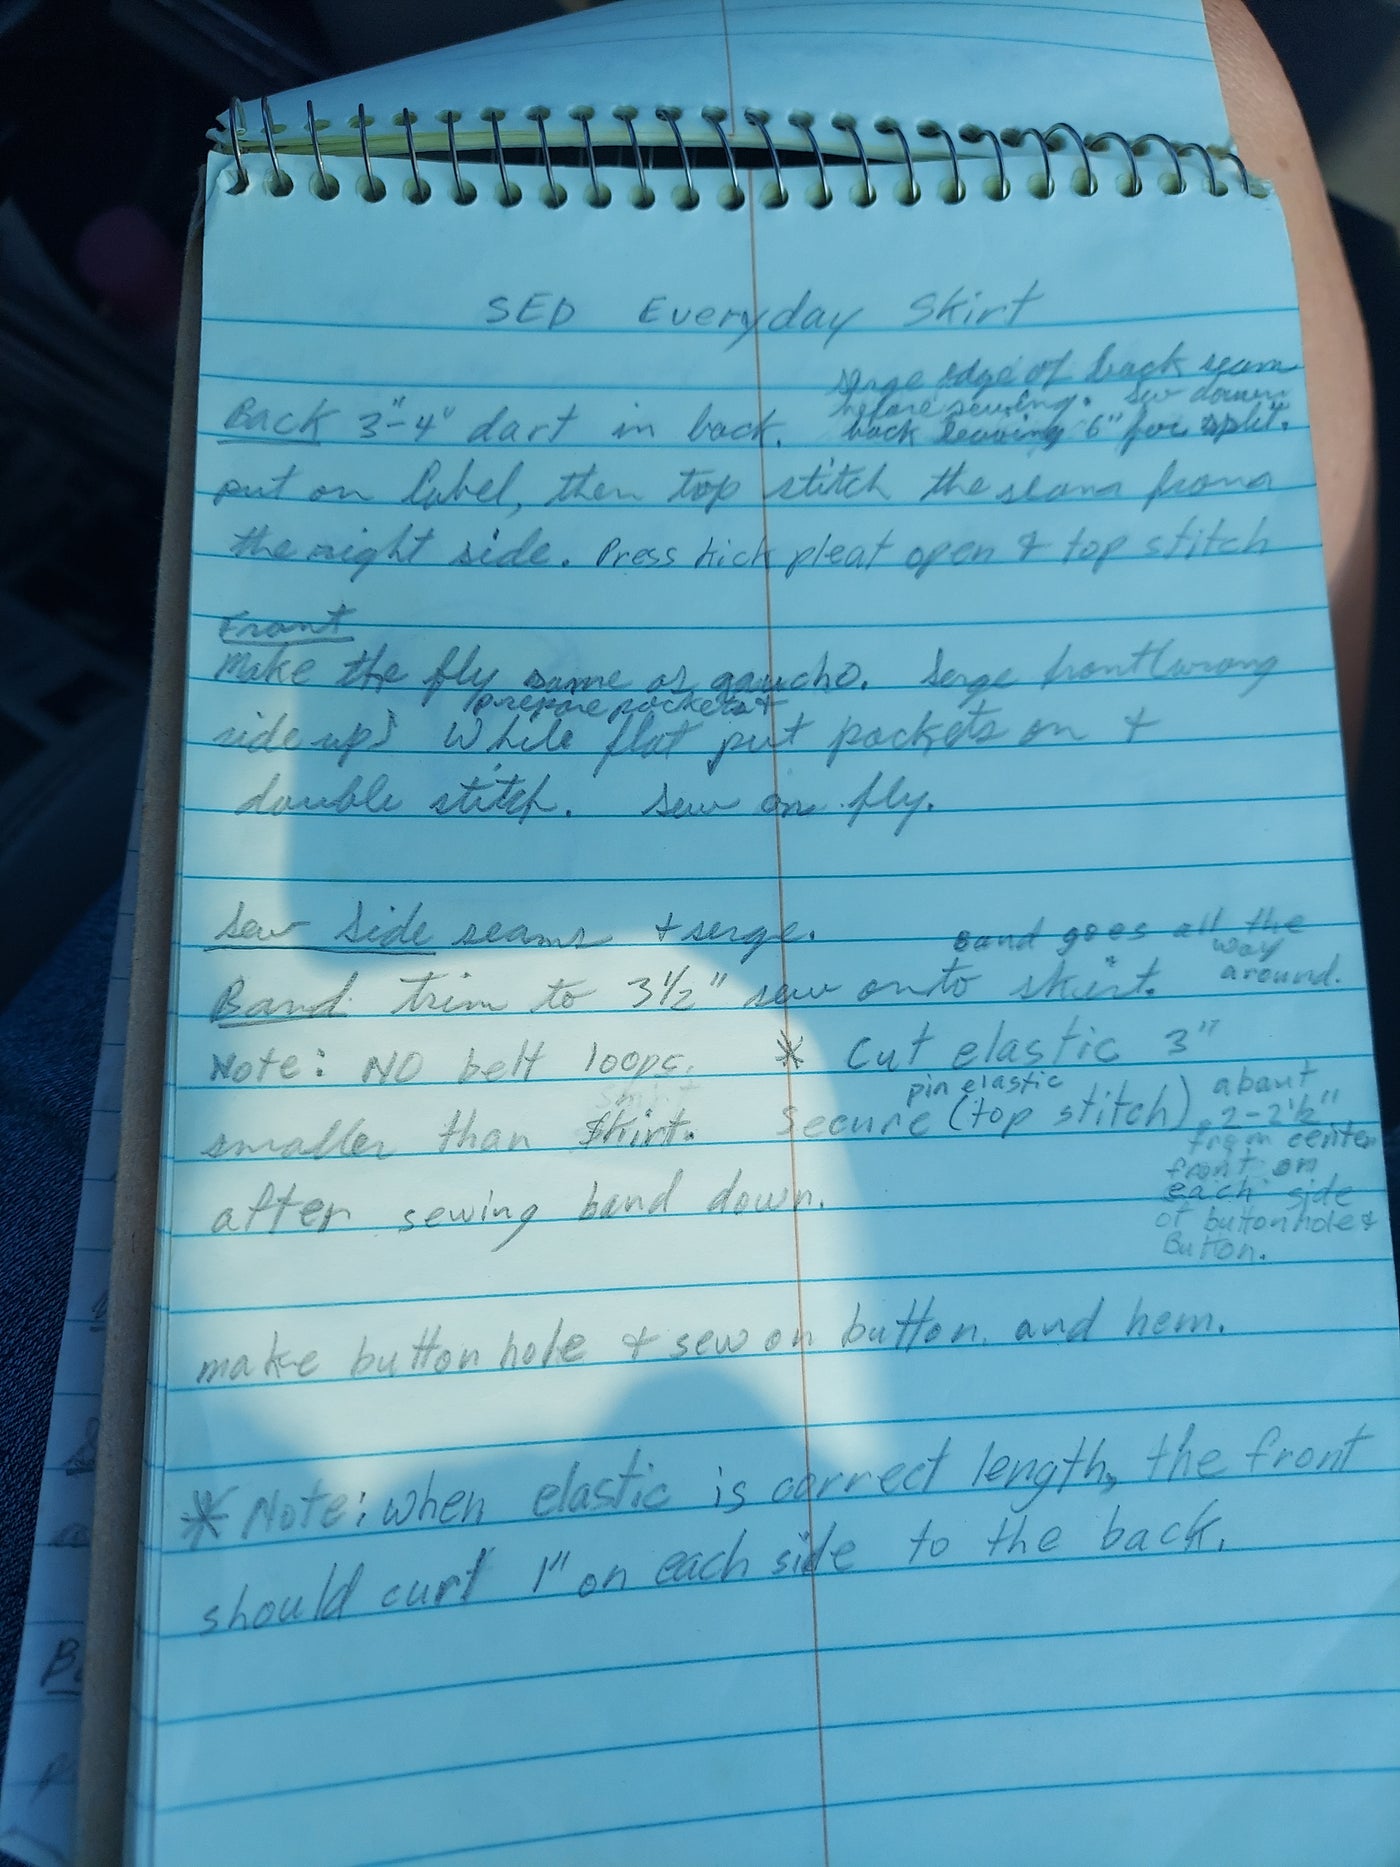 SED Everyday Skirt
serge edge of back seam
before sewing. Sew down
Back 3"-4" dart in back. back leaving 6" for split.
put on label, then top stitch the seam from
the right side. Press kick pleat open & top stitch
Front
Make the fly same as gaucho. Serge front (wrong
prepare pockets &
side up) While flat put pockets on &
double stitch. Sew on fly.
Sew Side seams + serge.
Band goes all the
way
Band trim to 3½" sew onto skirt. around.
Note: NO belt loops. * Cut elastic 3"
pin elastic
smaller than skirt. Secure (top stitch) about
2-2½"
from center
front on
each side
of buttonhole &
Button.
after sewing band down.
make button hole & sew on button. and hem.
* Note: when elastic is correct length, the front
should curl 1" on each side to the back.